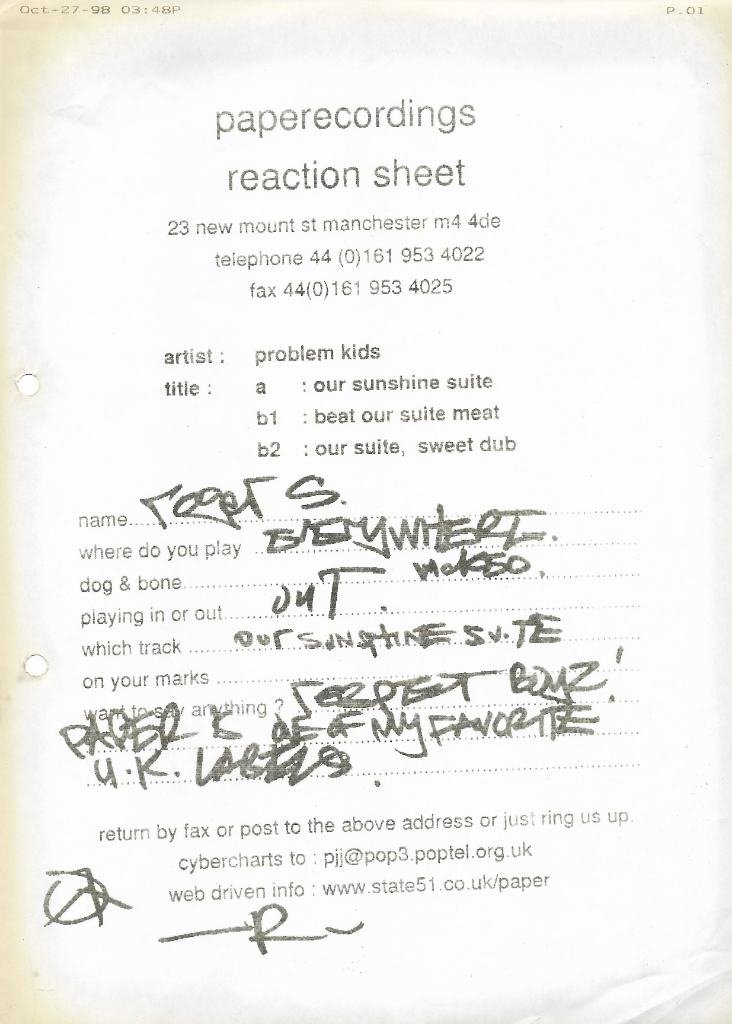 Oct-27-98 03:48P P.01
paperecordings
reaction sheet
23 new mount st manchester m4 4de
telephone 44 (0)161 953 4022
fax 44(0)161 953 4025
artist : problem kids
title : a : our sunshine suite
b1 : beat our suite meat
b2 : our suite, sweet dub
name.. roger S.
where do you play .. EVERYWHERE.
dog & bone
playing in or out.. OUT.
which track .. our SUNSHINE SUITE
on your marks
want to say anything ? respect BOYZ!
PAPER IS ONE OF MY FAVORITE
U.K. LABELS.
return by fax or post to the above address or just ring us up.
cybercharts to : pjj@pop3.poptel.org.uk
web driven info : www.state51.co.uk/paper
R